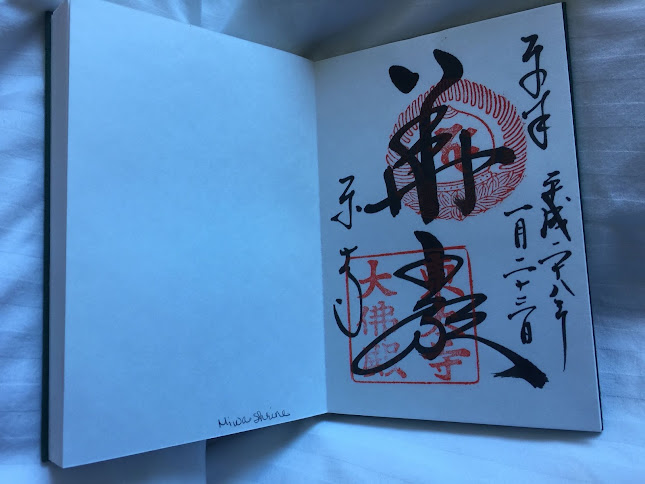 奉拝
平成二十八年
一月二十三日
華嚴
東大寺
大佛殿
東大寺
Miwa Shrine